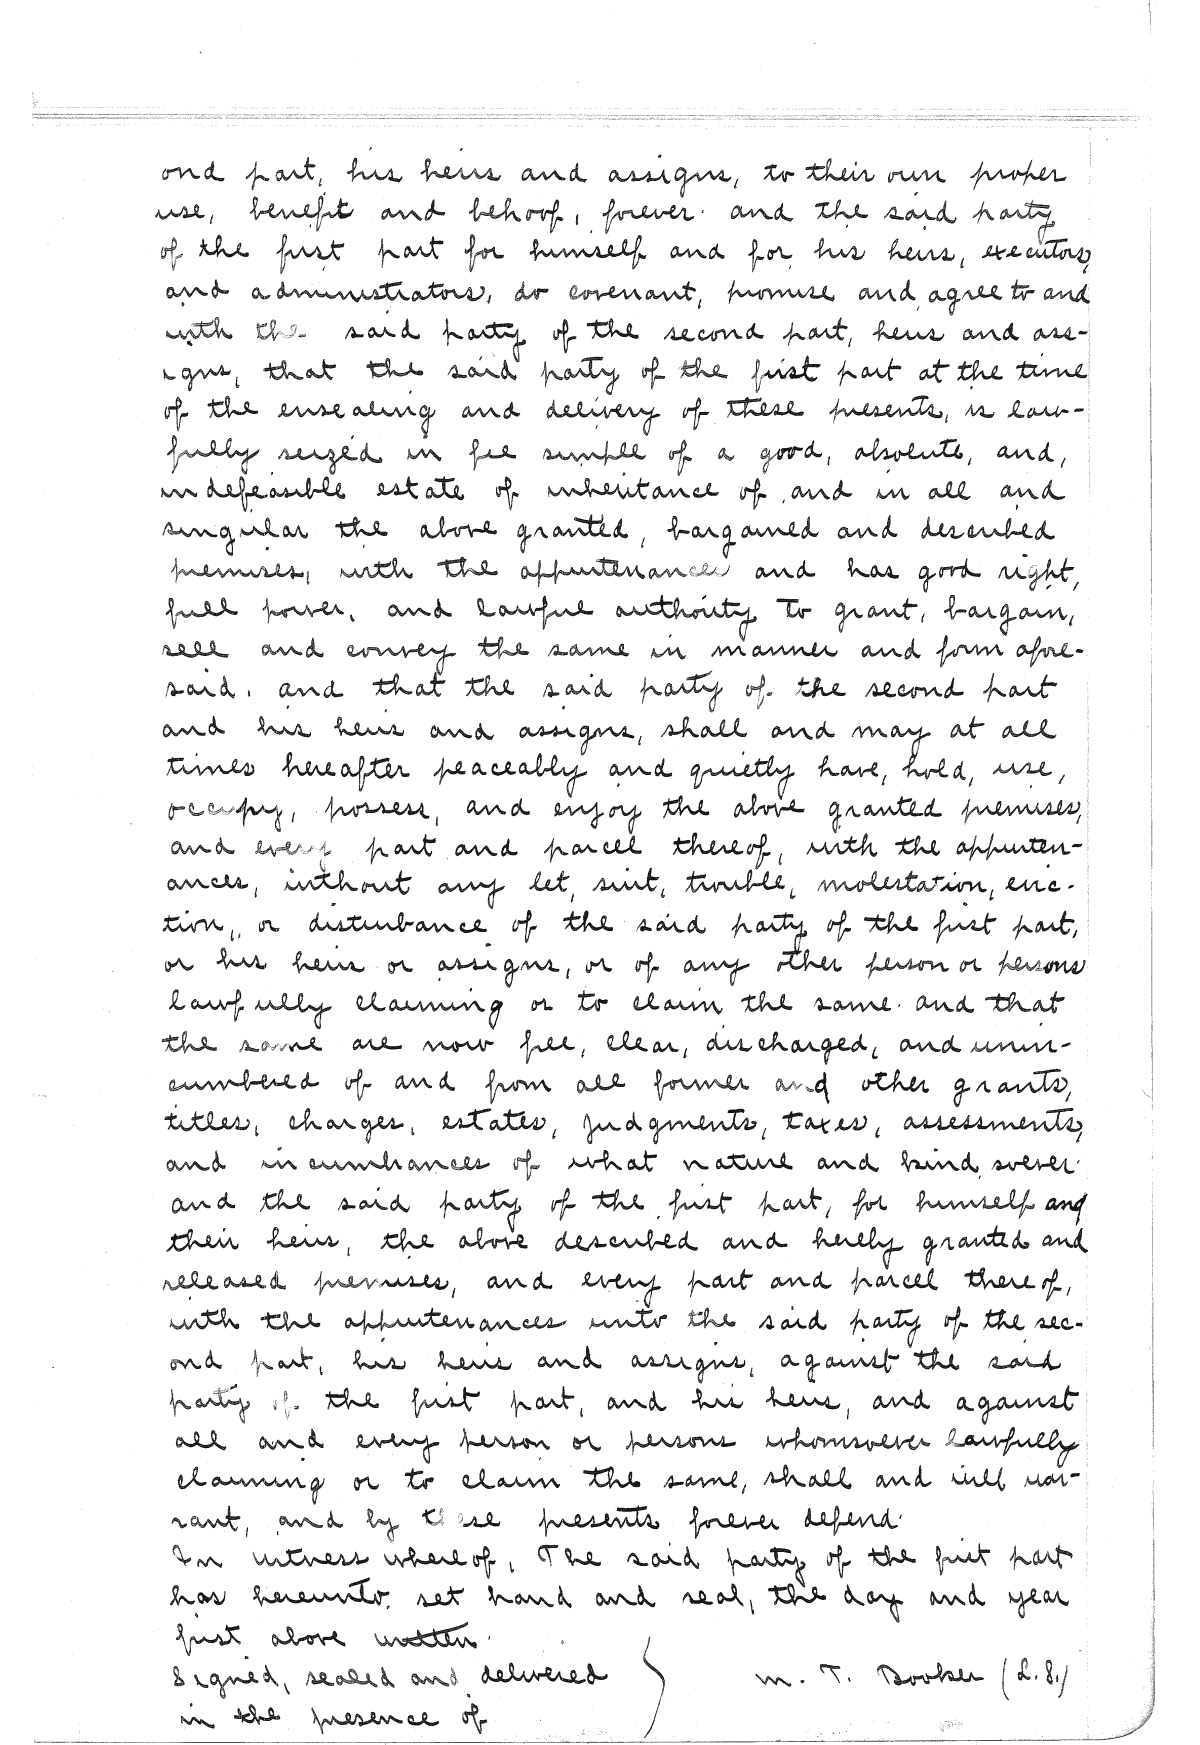 ond part, his heirs and assigns, to their own proper
use, benefit and behoof, forever. and the said party
of the first part for himself and for his heirs, executors,
and administrators, do covenant, promise and agree to and
with the said party of the second part, heirs and ass-
igns, that the said party of the first part at the time
of the ensealing and delivery of these presents, is law-
fully seized in fee simple of a good, absolute, and,
indefeasible estate of inheritance of and in all and
singular the above granted, bargained and described
premises, with the appurtenances and has good right,
full power, and lawful authority to grant, bargain,
sell and convey the same in manner and form afore-
said. and that the said party of the second part
and his heirs and assigns, shall and may at all
times hereafter peaceably and quietly have, hold, use,
occupy, possess, and enjoy the above granted premises,
and every part and parcel thereof, with the appurten-
ances, without any let, suit, trouble, molestation, evic-
tion, or disturbance of the said party of the first part,
or his heirs or assigns, or of any other person or persons
lawfully claiming or to claim the same. and that
the same are now free, clear, discharged, and unin-
cumbered of and from all former and other grants,
titles, charges, estates, judgments, taxes, assessments,
and incumbrances of what nature and kind soever.
and the said party of the first part, for himself and
their heirs, the above described and hereby granted and
released premises, and every part and parcel thereof,
with the appurtenances unto the said party of the sec-
ond part, his heirs and assigns, against the said
party of the first part, and his heirs, and against
all and every person or persons whomsoever lawfully
claiming or to claim the same, shall and will war-
rant, and by these presents forever defend.
In witness whereof, The said party of the first part
has hereunto set hand and seal, the day and year
first above written.
Signed, sealed and delivered M. T. Booker (L.S.)
in the presence of